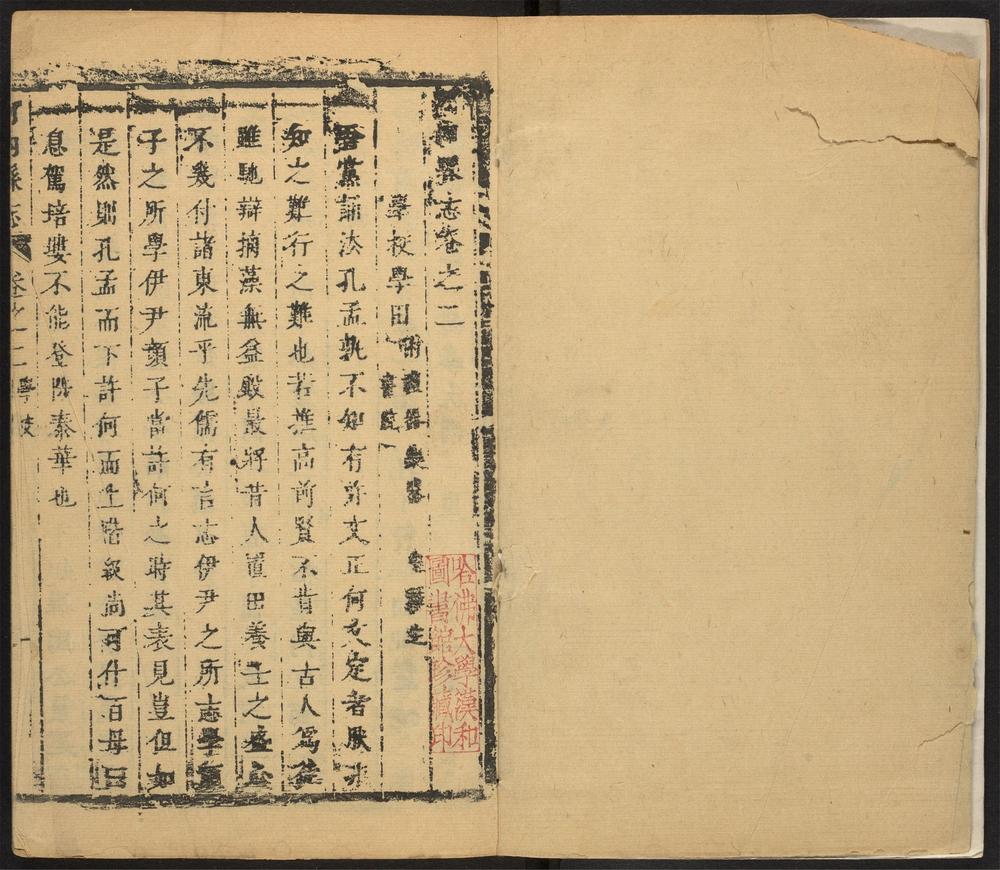 河內縣志卷之二
學校學田 附禮器樂器
書院
吾黨誦法孔孟孰不知有許文正何文定者厥非
知之難行之難也若推高前賢不肯與古人為徒
雖馳辯摛藻無益殿最將昔人置田養士之盛
不幾付諸東流乎先儒有言志伊尹之所志學顏
子之所學伊尹顏子當許何之時其表見豈但如
是然則孔孟而下許何而上階級尚可什百毋曰
息駕培塿不能登陟泰華也
河內縣志 卷之二 學校 一
哈佛大學漢和
圖書館珍藏印